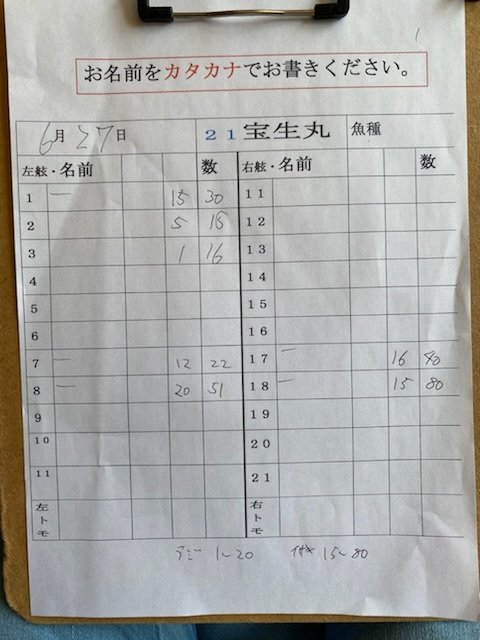 お名前をカタカナでお書きください。
6月27日 21 宝生丸 魚種
左舷・名前 数 右舷・名前 数
1 15 30 11
2 5 18 12
3 1 16 13
4 14
5 15
6 16
7 12 22 17 16 40
8 20 51 18 15 80
9 19
10 20
11 21
左トモ 右トモ
1〜20 15〜80